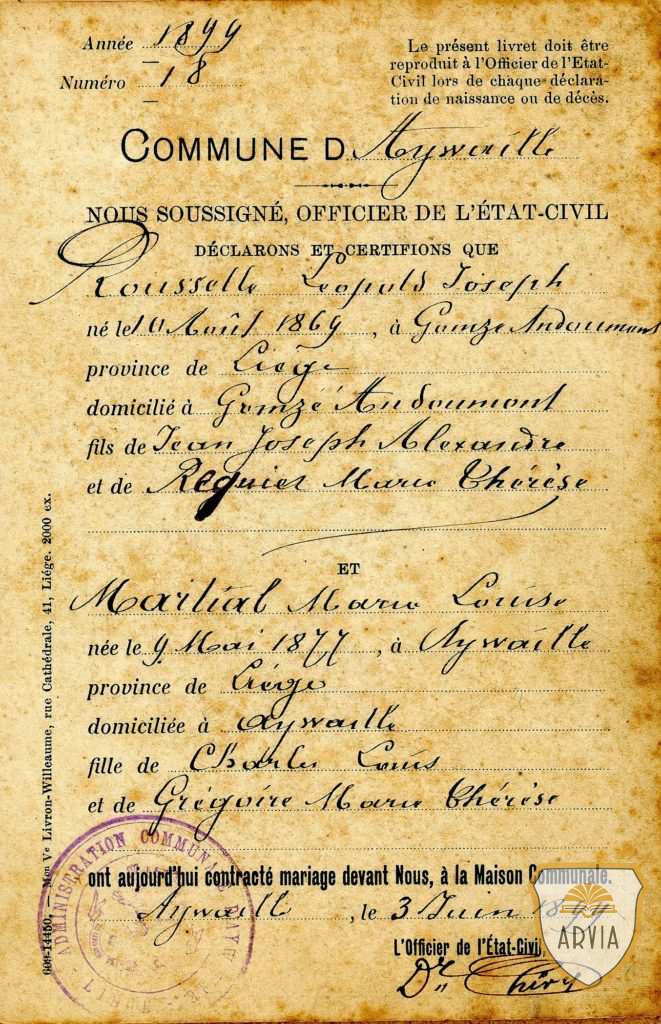 Année 1899
Numéro 18
Le présent livret doit être
reproduit à l'Officier de l'Etat-
Civil lors de chaque déclara-
tion de naissance ou de décès.
COMMUNE D Aywaille
NOUS SOUSSIGNÉ, OFFICIER DE L'ÉTAT-CIVIL
DÉCLARONS ET CERTIFIONS QUE
Rousselle Léopold Joseph
né le 10 Août 1869, à Gomzé Andoumont
province de Liége
domicilié à Gomzé Andoumont
fils de Jean Joseph Alexandre
et de Regnier Marie Thérèse
ET
Martial Marie Louise
née le 9 Mai 1877, à Aywaille
province de Liége
domiciliée à Aywaille
fille de Charles Louis
et de Grégoire Marie Thérèse
ont aujourd'hui contracté mariage devant Nous, à la Maison Communale.
Aywaille, le 3 Juin 1899
L'Officier de l'État-Civil,
Dr Thiry
ADMINISTRATION COMMUNALE D'AYW
LIEGE
ARVIA
609-14450. — Mon Ve Livron-Willeaume, rue Cathédrale, 41, Liége. 2000 ex.